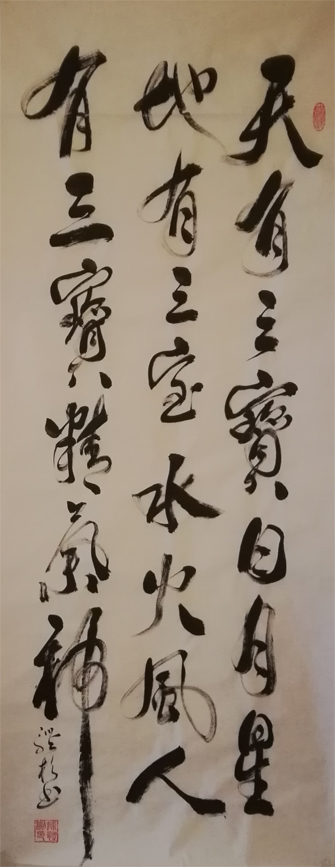 天有三寶日月星
地有三宝水火風人
有三寶精氣神